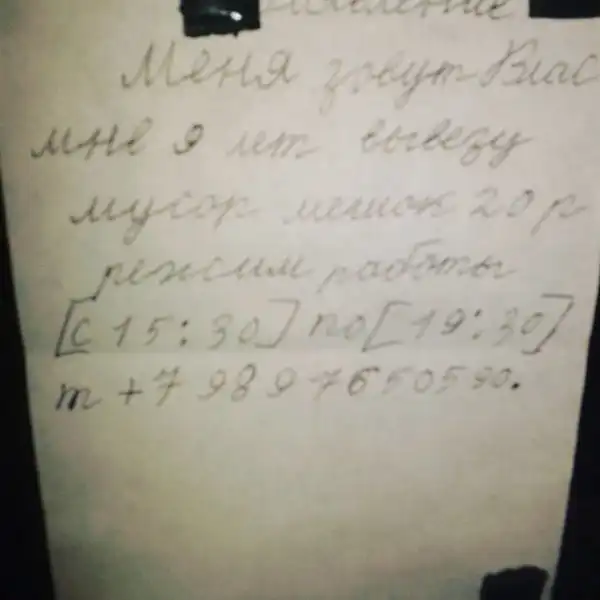 Объявление
Меня зовут Влас
мне 9 лет вывезу
мусор мешок 20 р
режим работы
[с 15:30] по [19:30]
т +7 989 7650590.